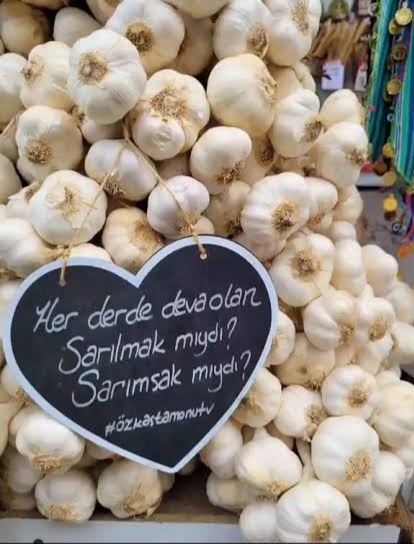 Her derde deva olan
Sarılmak mıydı?
Sarımsak mıydı?
#özkastamonutv